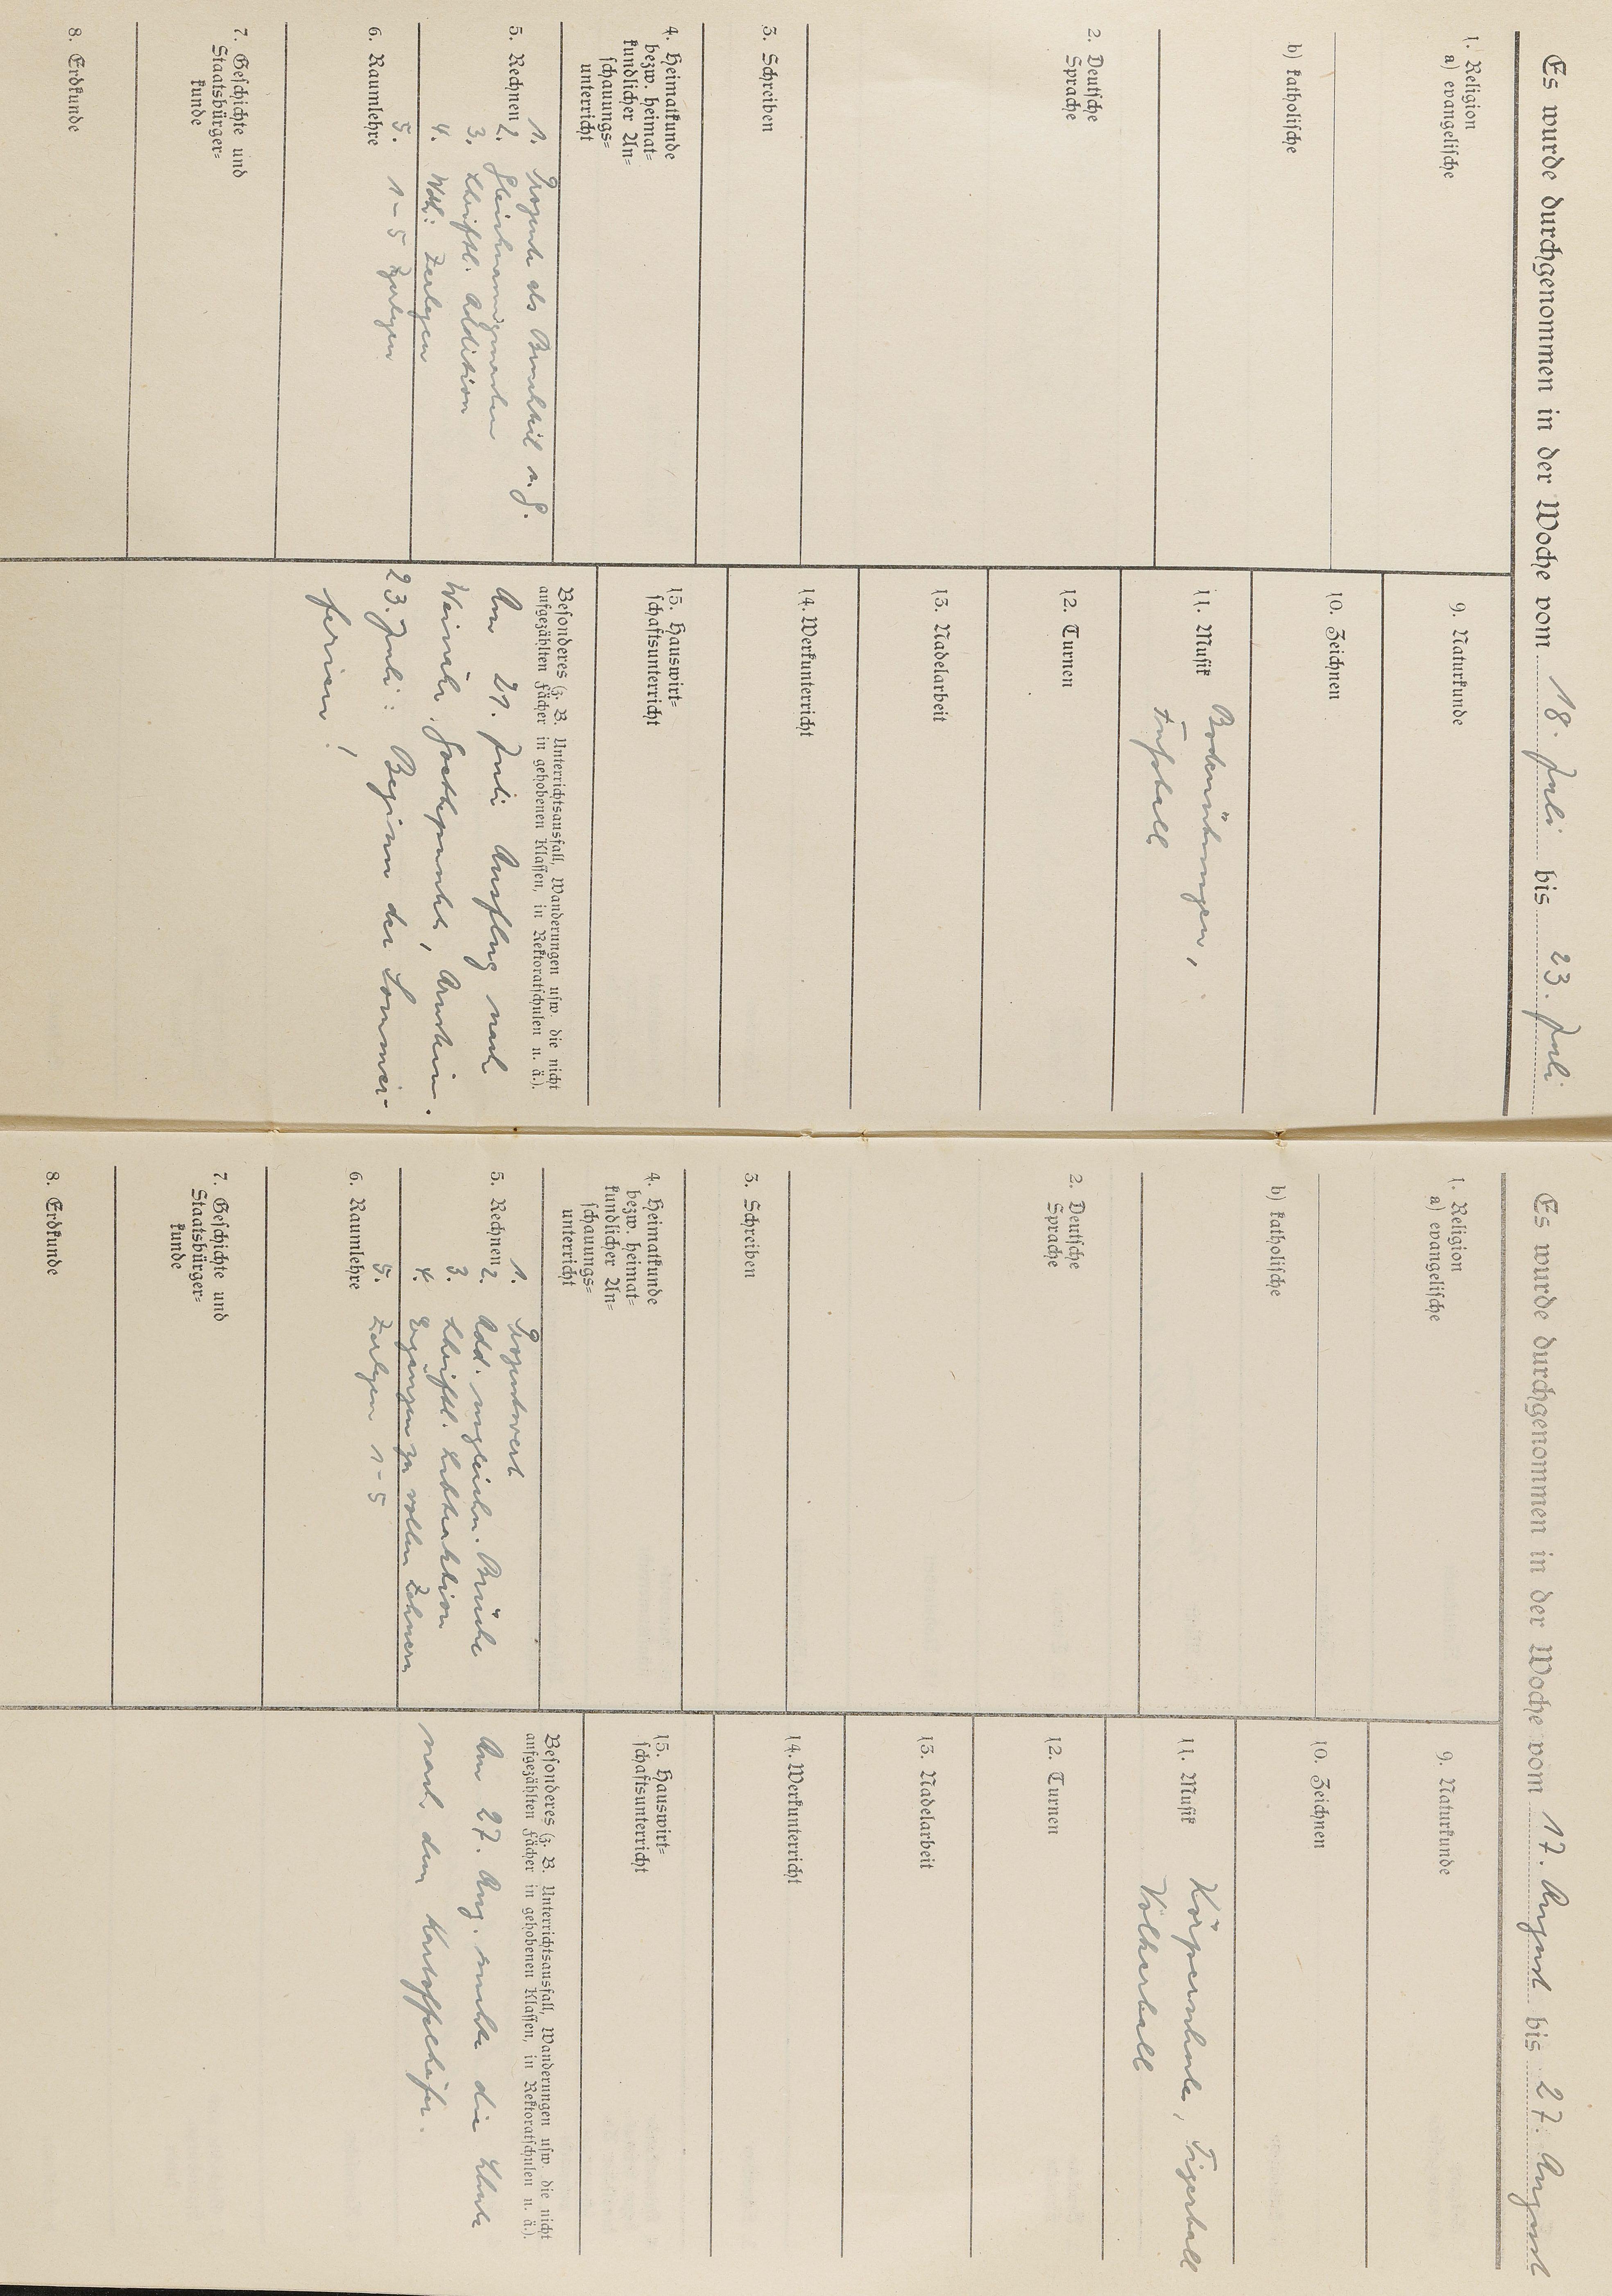 Es wurde durchgenommen in der Woche vom 18. Juli bis 23. Juli
1. Religion
a) evangelische
b) katholische
2. Deutsche
Sprache
3. Schreiben
4. Heimatkunde
bezw. heimat-
kundlicher An-
schauungs-
unterricht
5. Rechnen
1. Prozente als Bruchteil v. G.
2. Gleichnamigmachen
3. Schriftl. Addition
4. Wdh.: Zerlegen
6. Raumlehre
5. 1-5 Zerlegen
7. Geschichte und
Staatsbürger-
kunde
8. Erdkunde
9. Naturkunde
10. Zeichnen
11. Musik
Bodenübungen,
Fußball
12. Turnen
13. Nadelarbeit
14. Werkunterricht
15. Hauswirt-
schaftsunterricht
Besonderes (z. B. Unterrichtsausfall, Wanderungen usw. die nicht
aufgezählten Fächer in gehobenen Klassen, in Rektoratschulen u. ä.).
Am 21. Juli Ausflug nach
Weinähr, Goethepunkt, Arnstein.
23. Juli: Beginn der Sommer-
ferien!
Es wurde durchgenommen in der Woche vom 17. August bis 27. August
1. Religion
a) evangelische
b) katholische
2. Deutsche
Sprache
3. Schreiben
4. Heimatkunde
bezw. heimat-
kundlicher An-
schauungs-
unterricht
5. Rechnen
1. Prozentwert
2. Add. ungleichn. Brüche
3. Schriftl. Subtraktion
4. Ergänzen zu vollen Zehnern
6. Raumlehre
5. Zerlegen 1-5
7. Geschichte und
Staatsbürger-
kunde
8. Erdkunde
9. Naturkunde
10. Zeichnen
11. Musik
Körperschule, Tigerball
Völkerball
12. Turnen
13. Nadelarbeit
14. Werkunterricht
15. Hauswirt-
schaftsunterricht
Besonderes (z. B. Unterrichtsausfall, Wanderungen usw. die nicht
aufgezählten Fächer in gehobenen Klassen, in Rektoratschulen u. ä.).
Am 27. Aug. suchte die Schule
nach dem Kartoffelkäfer.